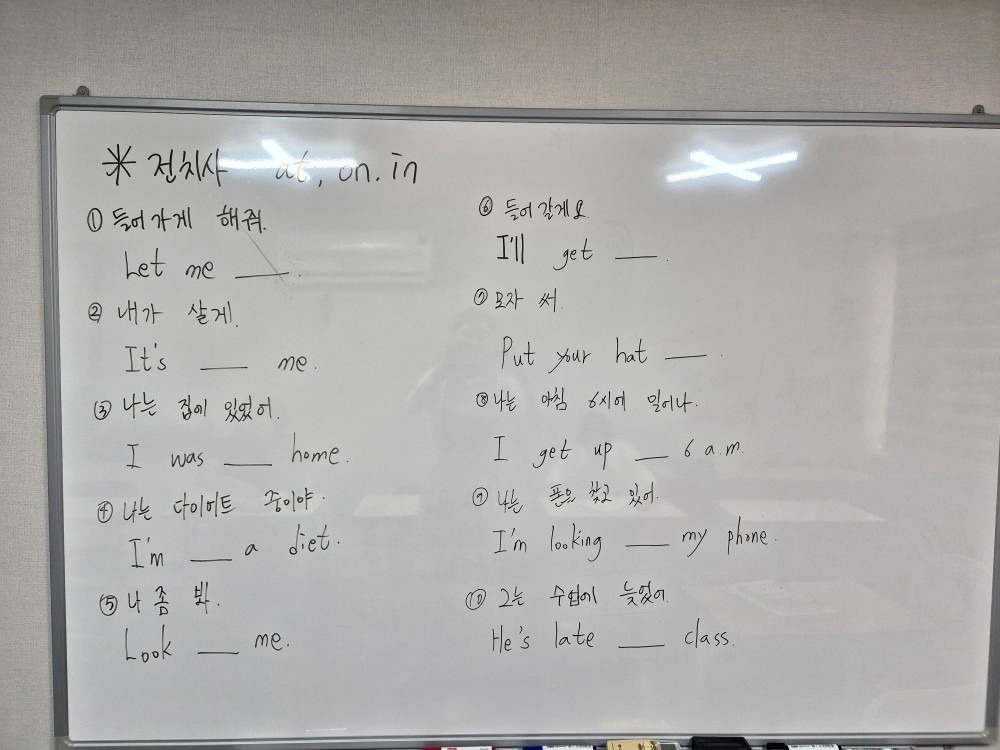 * 전치사 at, on, in
① 들어가게 해줘.
Let me ____.
② 내가 살게.
It's ____ me.
③ 나는 집에 있었어.
I was ____ home.
④ 나는 다이어트 중이야.
I'm ____ a diet.
⑤ 나 좀 봐.
Look ____ me.
⑥ 들어갈게요.
I'll get ____.
⑦ 모자 써.
Put your hat ____.
⑧ 나는 아침 6시에 일어나.
I get up ____ 6 a.m.
⑨ 나는 폰을 찾고 있어.
I'm looking ____ my phone.
⑩ 그는 수업에 늦었어.
He's late ____ class.